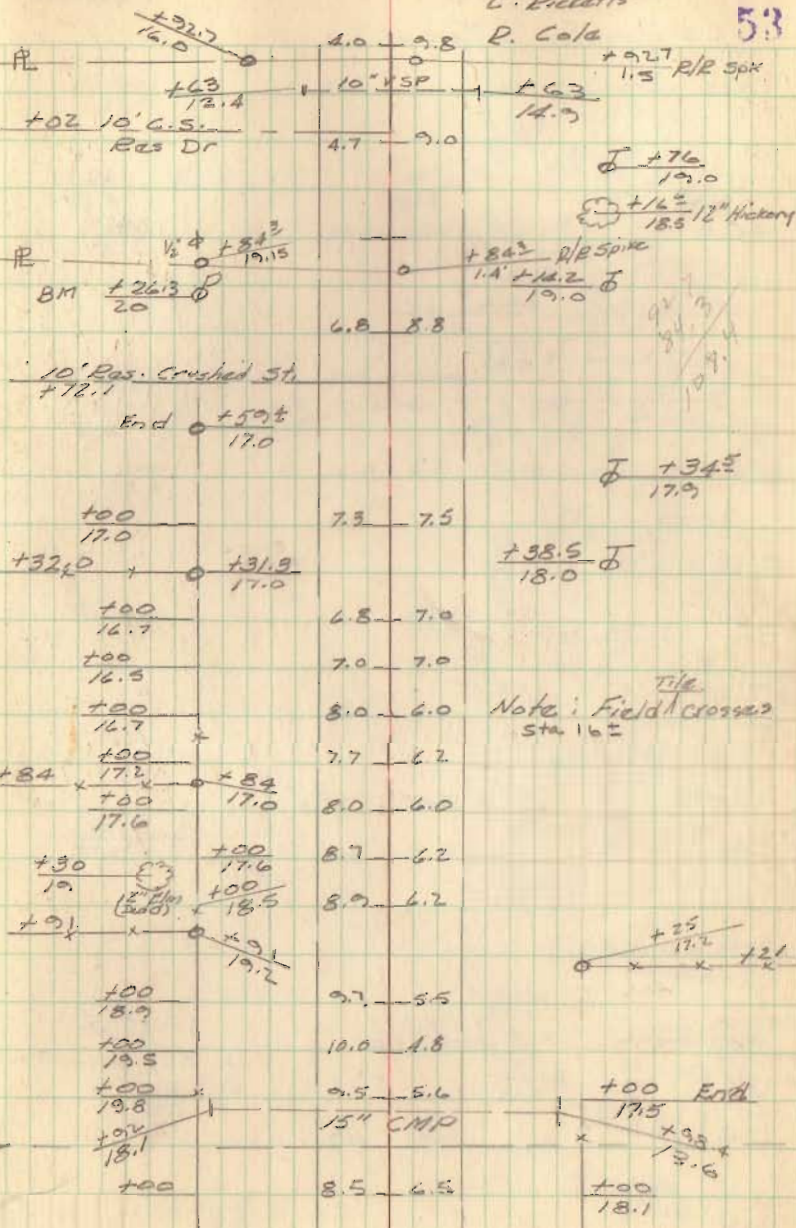 53
R. Cole
+92.7
16.0
4.0 9.8
+92.7
1.5 R/R Spk
PL
+63
13.4
10" VSP
+63
14.9
+02 10' C.S.
Res Dr
4.7 9.0
+76
19.0
+16±
18.5 12" Hickory
PL
1/2" ϕ +84³
19.15
+84³
1.4' R/R Spike
+14.2
19.0
BM +26.3
20
6.8 8.8
92.7
84.3
108.4
10' Res. Crushed St.
+72.1
End +59±
17.0
+34⁵
17.9
+00
17.0
7.3 7.5
+32.0
+31.9
17.0
+38.5
18.0
+00
16.7
6.8 7.0
+00
16.5
7.0 7.0
+00
16.7
8.0 6.0
Note: Field Tile crosses
Sta 16±
+00
17.2
7.7 6.2
+84
+84
17.0
+00
17.6
8.0 6.0
+00
17.6
8.7 6.2
+30
19
12" Elm
(Dead)
+00
18.5
8.9 6.2
+91
+91
19.2
+25
17.2
+21
+00
18.9
9.7 5.5
+00
19.5
10.0 4.8
+00
19.8
9.5 5.6
+00
17.5 End
15" CMP
18.1
13.6
+00
8.5 6.5
+00
18.1